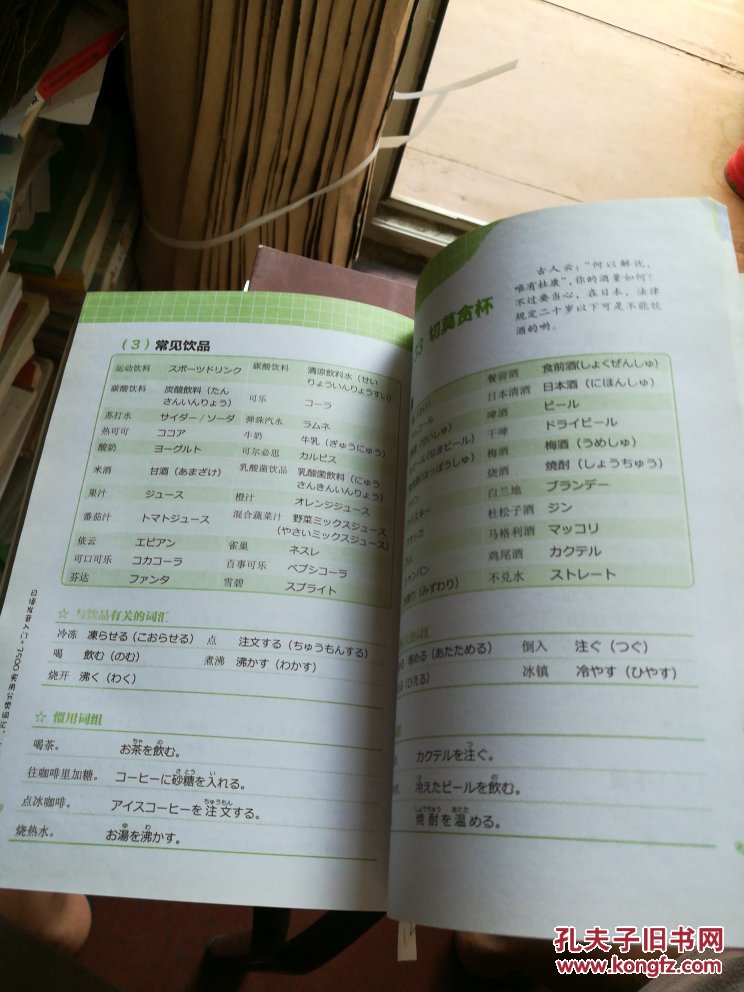 （3）常见饮品
运动饮料 スポーツドリンク 碳酸饮料 清涼飲料水（せい
りょういんりょうすい）
碳酸饮料 炭酸飲料（たん
さんいんりょう） 可乐 コーラ
苏打水 サイダー／ソーダ 弹珠汽水 ラムネ
热可可 ココア 牛奶 牛乳（ぎゅうにゅう）
酸奶 ヨーグルト 可尔必思 カルピス
米酒 甘酒（あまざけ） 乳酸菌饮品 乳酸菌飲料（にゅう
さんきんいんりょう）
果汁 ジュース 橙汁 オレンジジュース
番茄汁 トマトジュース 混合蔬菜汁 野菜ミックスジュース
（やさいミックスジュース）
依云 エビアン 雀巢 ネスレ
可口可乐 コカコーラ 百事可乐 ペプシコーラ
芬达 ファンタ 雪碧 スプライト
☆ 与饮品有关的词汇
冷冻 凍らせる（こおらせる） 点 注文する（ちゅうもんする）
喝 飲む（のむ） 煮沸 沸かす（わかす）
烧开 沸く（わく）
☆ 惯用词组
喝茶。 お茶を飲む。
往咖啡里加糖。 コーヒーに砂糖を入れる。
点冰咖啡。 アイスコーヒーを注文する。
烧热水。 お湯を沸かす。
切莫贪杯
古人云：“何以解忧，
唯有杜康”，你的酒量如何？
不过要当心，在日本，法律
规定二十岁以下可是不能饮
酒的哟。
餐前酒 食前酒（しょくぜんしゅ）
日本清酒 日本酒（にほんしゅ）
啤酒 ビール
干啤 ドライビール
梅酒 梅酒（うめしゅ）
烧酒 焼酎（しょうちゅう）
白兰地 ブランデー
杜松子酒 ジン
马格利酒 マッコリ
鸡尾酒 カクテル
不兑水 ストレート
（みずわり）
的词汇
める（あたためる） 倒入 注ぐ（つぐ）
る（ひえる） 冰镇 冷やす（ひやす）
カクテルを注ぐ。
冷えたビールを飲む。
焼酎を温める。
孔夫子旧书网
www.kongfz.com